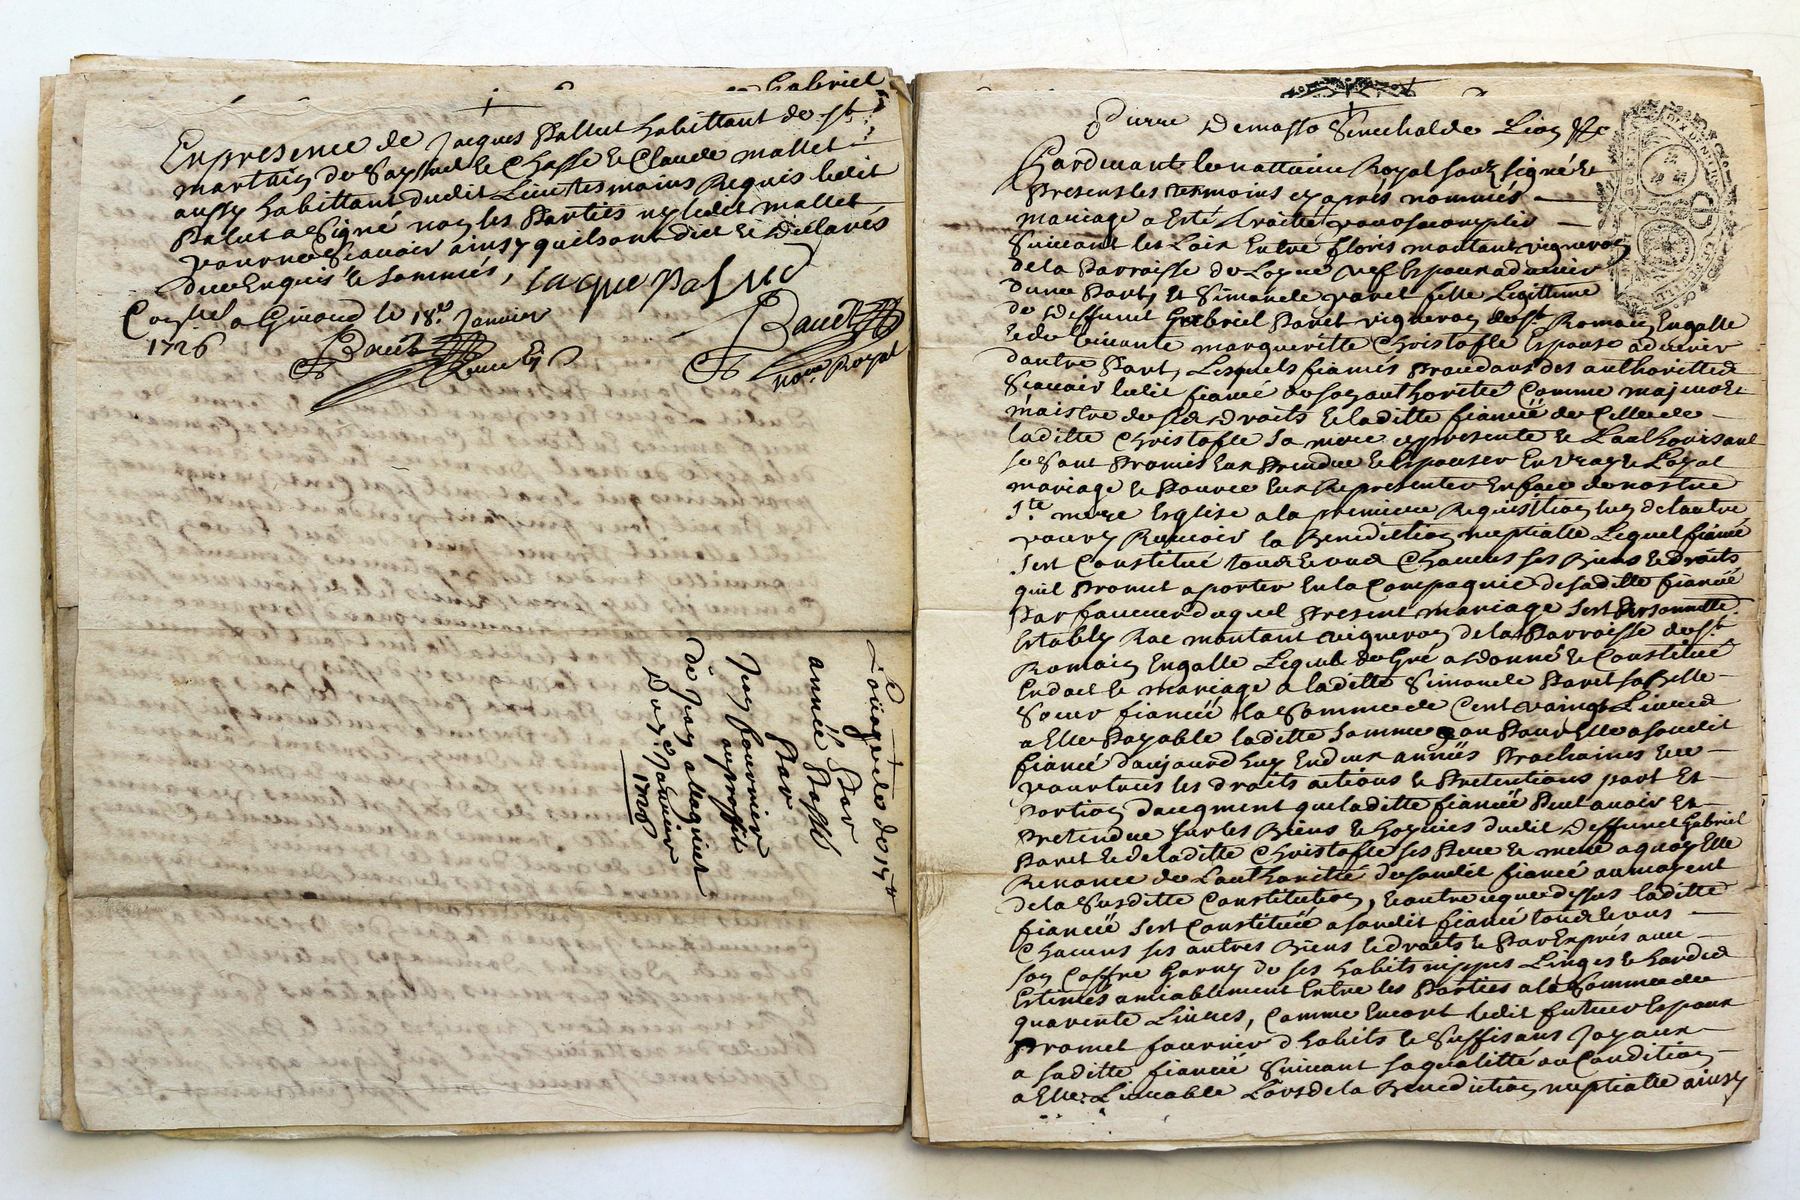 Gabriel
En presence de Jacques Pallut habittant de St
martain de et Claude mallet
aussy habittant dudit Lieu tesmoins Requis ledit
Palut a Signé non les Parties ny ledit mallet
pour ne Scavoir ainsy quils ont dict et declarés
du ce Enquis et sommés, Jaque Palud
a Givaud le 18e Janvier
1726
Baudt
Baudt
nore Royal
Loüage de 17tt
10s Par
année Passé
Par
Jean fournier
au proffit
de Jean allaquier
Du 7e Janvier
1726
Pierre Demasso Senechal de Lion &c
Pardevant le nottaire Royal souz signé et
Presens les tesmoins cy après nommés
mariage a Esté Traitté pour s'accomplir
Suivant les Loix Entre floris montant vigneron
de la Parroisse de Loyre vef Espoux advenir
dune Part, et Simonde paret fille Legittime
de deffunct Gabriel Paret vigneron de St Romain Engalle
et de vivante margueritte Christofle Espouse advenir
dautre Part, Lesquels fiancés Procedans des authorittes
Scavoir ledit fiancé de son authoritté Comme majeur et
maistre de ses droits et laditte fiancée de Celle de
laditte Christofle Sa mere cy presente et Lauthorisant
se Sont Promis Eux Prendre et Espouser En vray et Loyal
mariage et Pource Eux Representer En face de nostre
Ste mere Esglise a la premiere Requisition lun de lautre
pour y Recevoir la Benediction nuptialle Lequel fiancé
Sest Constitué tous et un Chacuns ses Biens et droits
quil Promet aporter En la Compagnie de saditte fiancée
Par faveur duquel Present mariage Sest Personnelle.
Estably montant vigneron de la Parroisse de St
Romain Engalle Lequel de Gré a donné et Constitué
En dot et mariage a laditte Simonde Paret sa Belle
Soeur fiancée la Somme de Cent vaingt Livres
a Elle Payable laditte somme ou Pour Elle a sondit
fiancé daujourdhuy En deux années Prochaines Et
pour tous les droits actions et Pretentions part Et
Portion daugment que laditte fiancée Peut avoir Et
Pretendre sur les Biens et hoyries dudit deffunct Gabriel
Paret et de laditte Christofle ses Pere et mere a quoy Elle
Renonce de Lauthoritté de sondit fiancé au moyent
de la Susditte Constitution, et outre ce que dessus laditte
fiancée Sest Constituée a sondit fiancé tous et uns
Chacuns ses autres Biens et droits et Par Exprés avec
son Coffre Garny de ses habits nippes Linges et hardes
Estimés amiablement Entre les Parties a la Somme de
quarente Livres, Comme Encort ledit futur Espoux
Promet fournir dhabits et Suffisans Joyaux
a saditte fiancée Suivant sa qualitté ou Condition
a Elle Livrable Lors de la Benediction nuptialle ainsy